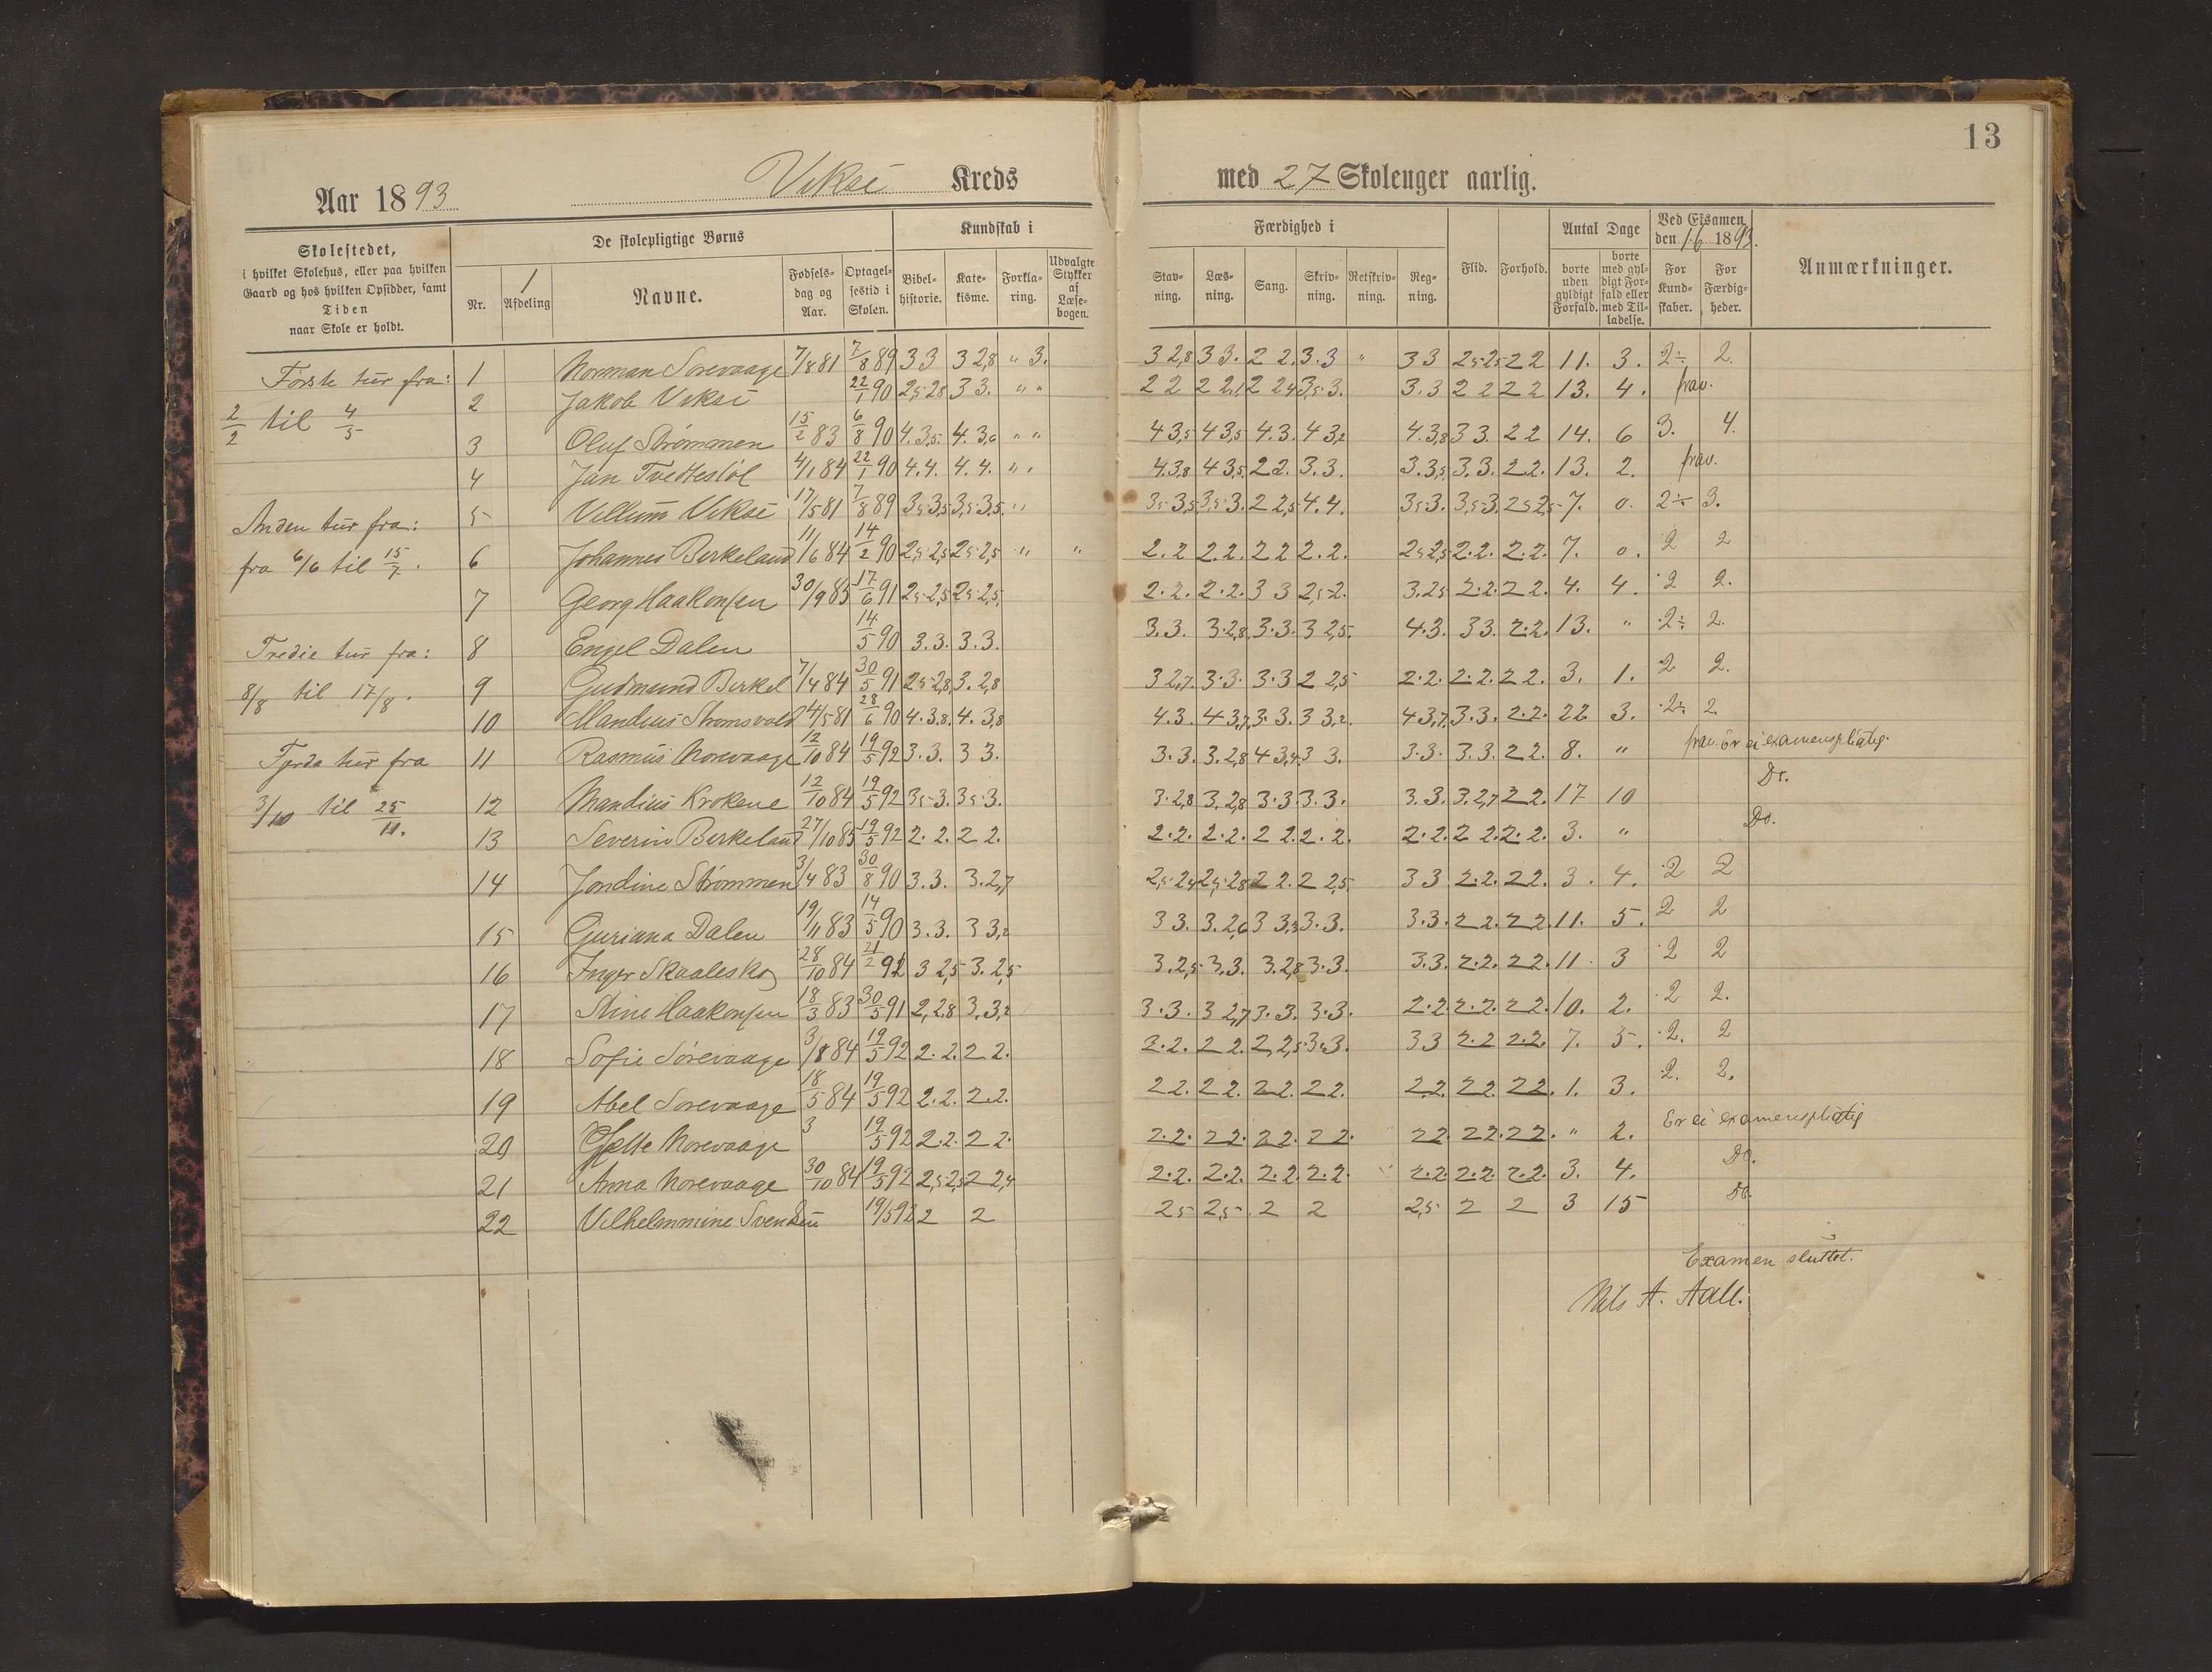 13
Aar 1893 Vikse Kreds med 27 Skoleuger aarlig.
Skolestedet, i hvilket Skolehus, eller paa hvilken Gaard og hos hvilken Opsidder, samt Tiden naar Skole er holdt.
De skolepligtige Børns
Nr. 1 Afdeling Navne. Fødselsdag og Aar. Optagelsestid i Skolen.
Kundskab i
Bibelhistorie. Katekisme. Forklaring. Udvalgte Stykker af Læsebogen.
Færdighed i
Stavning. Læsning. Sang. Skrivning. Retskrivning. Regning. Flid. Forhold.
Antal Dage
borte uden gyldigt Forfald. borte med gyldigt Forfald eller med Tilladelse.
Ved Eksamen den 1.6 1893.
For Kundskaber. For Færdigheder.
Anmærkninger.
Første tur fra:
2/2 til 4/3
Anden tur fra:
fra 6/6 til 15/7.
Tredie tur fra:
8/8 til 17/8.
Fjrda tur fra
3/10 til 25/11.
1 Norman Sørevaage 7/8 81 7/8 89 3 3 3 2,8 " 3. 3 2,8 3 3. 2 2. 3. 3 " 3 3 2,5 2,5 2 2 11. 3. 2÷ 2.
2 Jakob Viksé 22/1 90 2,5 2,8 3 3. " " 2 2 2 2,1 2 2,4 3,5 3. 3. 3 2 2 2 2 13. 4. frav.
3 Oluf Strømmen 15/2 83 6/8 90 4. 3,5 4. 3,6 " " 4 3,5 4 3,5 4. 3. 4 3,2 4. 3,8 3 3. 2 2 14. 6 3. 4.
4 Jan Tvedtestøl 4/1 84 22/1 90 4. 4. 4. 4. " " 4. 3,8 4 3,5 2 2. 3. 3. 3. 3,5 3. 3. 2. 2. 13. 2. frav.
5 Villum Viksé 17/5 81 7/8 89 3,5 3,5 3,5 3,5. " 3,5 3,5 3,5 3. 2 2,5 4. 4. 3,5 3. 3,5 3. 2,5 2,5 7. 0. 2÷ 3.
6 Johannes Birkeland 11/6 84 14/2 90 2,5 2,5 2,5 2,5 " " 2. 2 2. 2. 2 2 2. 2. 2,5 2,5 2. 2. 2. 2. 7. 0. 2 2
7 Georg Haakonsen 30/9 85 17/6 91 2,5 2,5 2,5 2,5. 2. 2. 2. 2. 3 3 2,5 2. 3. 2,5 2. 2. 2 2. 4. 4. 2 2.
8 Engel Dalen 14/5 90 3. 3. 3. 3. 3. 3. 3. 2,8 3. 3. 3 2,5. 4. 3. 3 3. 2. 2. 13. " 2÷ 2.
9 Gudmund Birkel 7/4 84 30/5 91 2,5 2,8 3. 2,8 3 2,7. 3. 3. 3. 3 2 2,5 2. 2. 2. 2. 2 2. 3. 1. 2 2.
10 Mandius Strømsvold 24/5 81 28/6 90 4. 3,8. 4. 3,8 4. 3. 4 3,7 3. 3. 3 3,2. 4 3,7. 3. 3. 2. 2. 22 3. 2÷ 2
11 Rasmus Norevaage 12/10 84 19/5 92 3. 3. 3 3. 3. 3. 3. 2,8 4 3,4 3 3. 3. 3. 3. 3. 2 2. 8. " frav. Er ei examenspligtig.
12 Mandius Krokene 12/10 84 19/5 92 3,5 3. 3,5 3. 3. 2,8 3. 2,8 3. 3. 3. 3. 3. 3. 3. 2,7 2 2. 17 10 Do.
13 Severin Birkeland 27/10 85 19/5 92 2. 2. 2 2. 2. 2. 2. 2. 2 2. 2. 2. 2. 2. 2 2. 2. 2. 3. " Do.
14 Jondine Strømmen 3/4 83 30/8 90 3. 3. 3. 2,7 2,5 2,4 2,5 2,8 2 2. 2 2,5. 3 3 2. 2. 2 2. 3. 4. 2 2
15 Guriana Dalen 19/11 83 14/5 90 3. 3. 3 3,2 3 3. 3. 2,6 3 3,3 3. 3. 3. 3. 2 2. 2 2. 11. 5. 2 2
16 Inger Skaaleskog 28/10 84 21/2 92 3 2,5 3. 2,5 3. 2,5 3. 3. 3. 2,8 3. 3. 3. 3. 2. 2. 2 2. 11 3 2 2
17 Stine Haakonsen 18/3 83 30/5 91 2, 2.8 3. 3,2 3. 3. 3 2,7 3. 3. 3. 3. 2. 2. 2. 2. 2 2. 10. 2. 2 2.
18 Sofie Sørevaage 3/8 84 19/5 92 2. 2. 2 2. 2. 2. 2 2. 2, 2,5 3,5 3. 3 3 2. 2 2. 2. 7. 5. 2. 2
19 Abel Sørevaage 18/5 84 19/5 92 2. 2. 2. 2. 2 2. 2 2. 2 2. 2 2. 2. 2. 2 2. 2 2. 1. 3. 2. 2.
20 Norevaage 3 19/5 92 2. 2. 2 2. 2. 2. 2 2. 2 2. 2 2. 2 2. 2 2. 2 2. " 2. Er ei examenspligtig
21 Anna Norevaage 30/10 84 19/5 92 2,5 2,5 2 2,4 2. 2. 2. 2. 2. 2. 2. 2. 2. 2 2. 2. 2. 2. 3. 4. Do.
22 Vilhelmmine Svendsen 19/5 92 2 2 2,5 2,5 2 2 2,5 2 2 3 15 Do.
Examen sluttet.
Nils A. Aall.